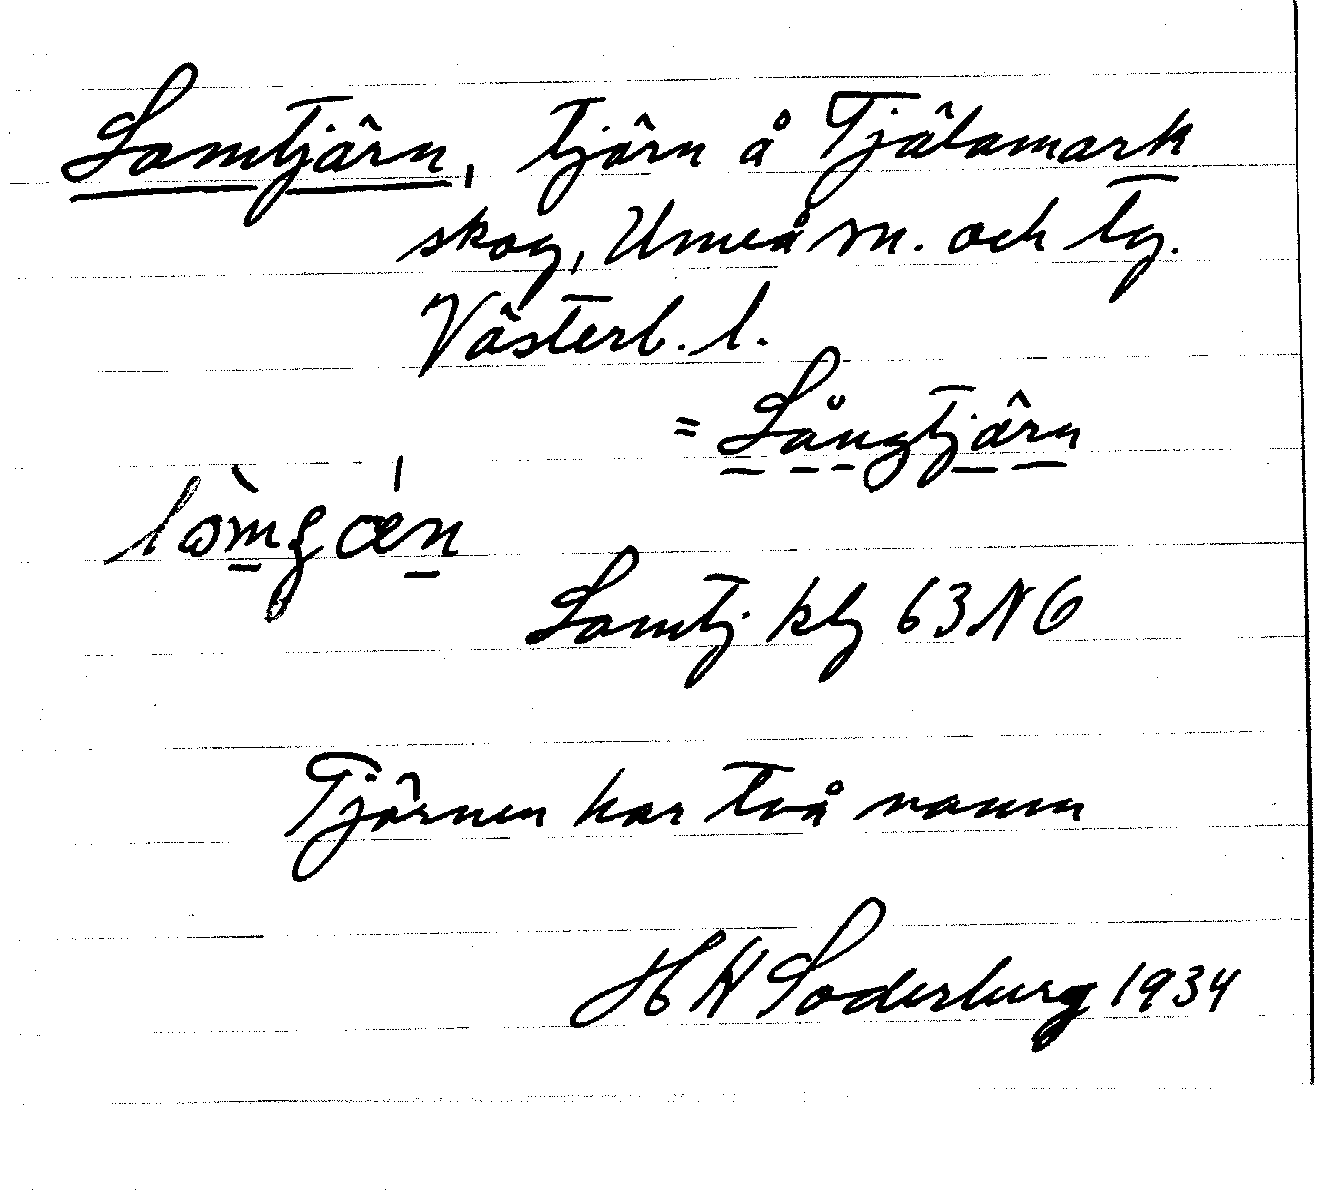 Lomtjärn, tjärn å Tjälamark
skog, Umeå sn. och tg.
Västerb. l.
= Långtjärn
Lomtj. kbl 63 NO
Tjärnen har två namn
H H Söderberg 1934